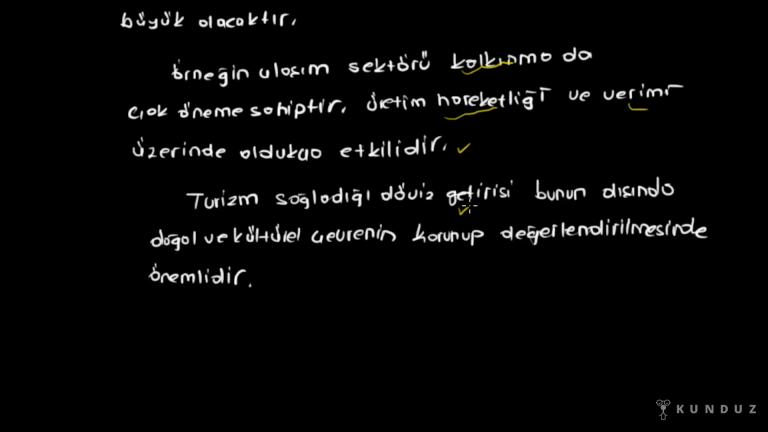 büyük olacaktır.
Örneğin ulaşım sektörü kalkınma da
çok öneme sahiptir. Üretim hareketliği ve verimi
üzerinde oldukça etkilidir.
Turizm sağladığı döviz getirisi bunun dışında
doğal ve kültürel çevrenin korunup değerlendirilmesinde
önemlidir.
KUNDUZ